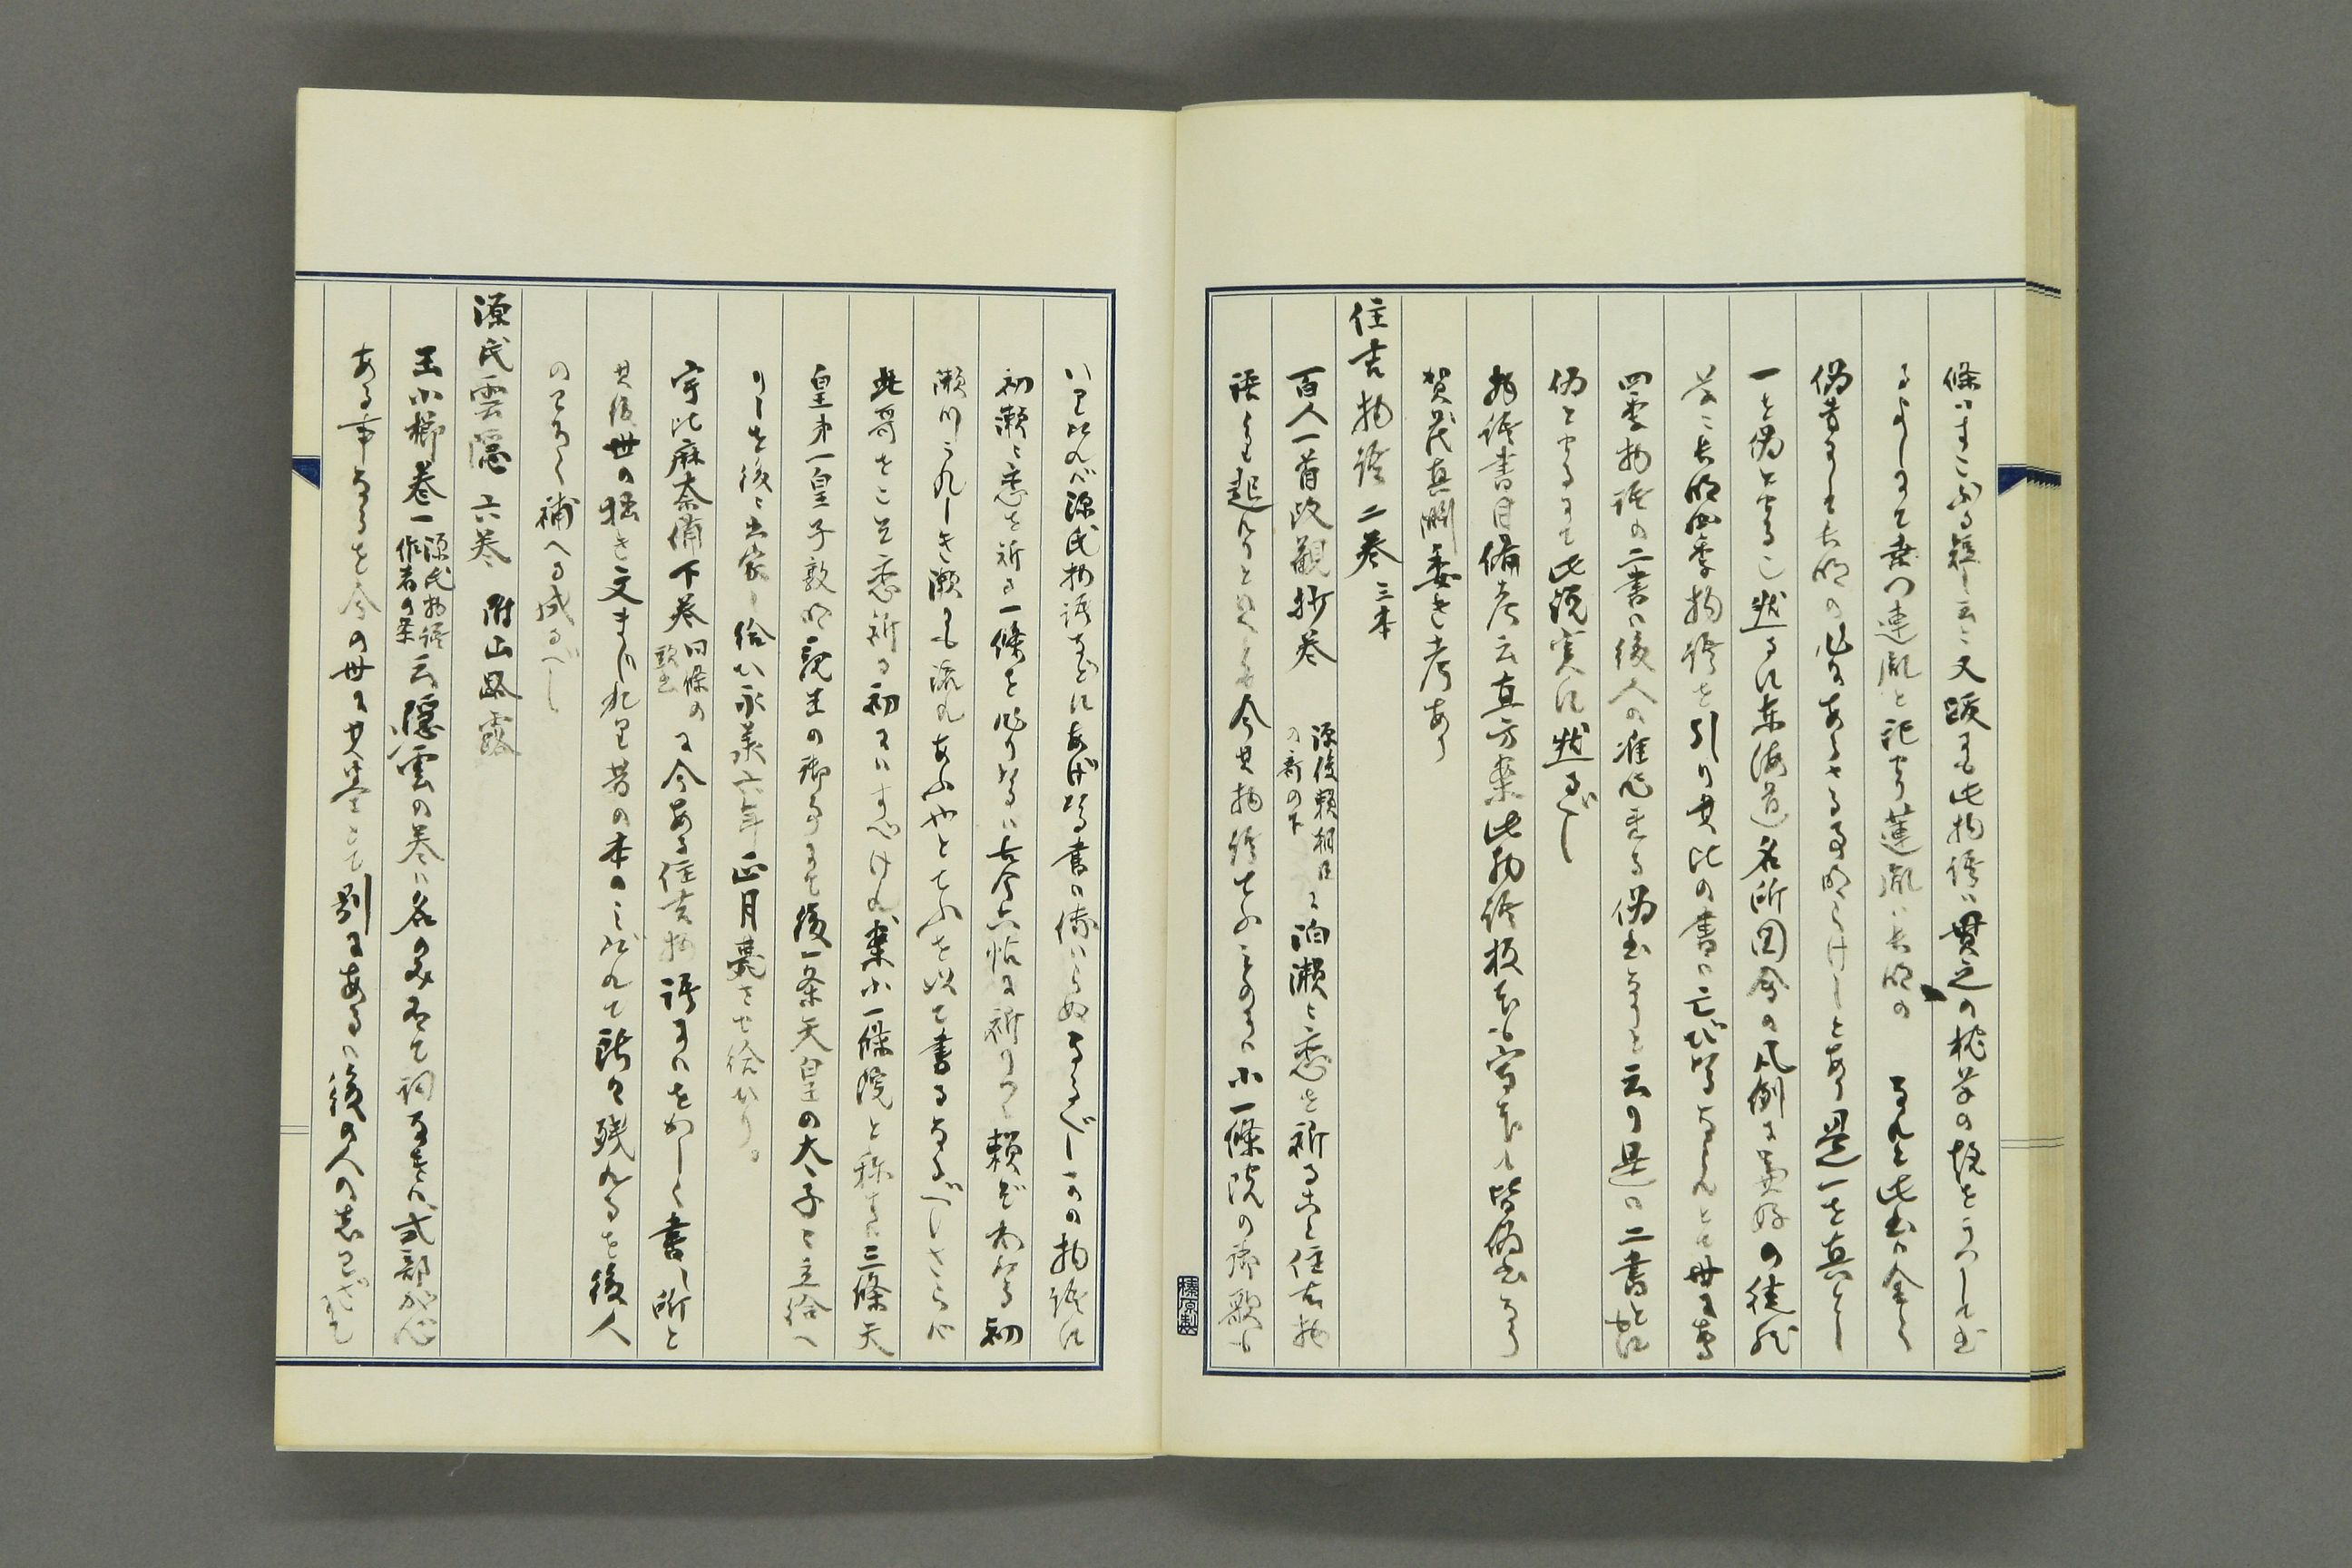 條はまことふる短し云々又跋にも此物語は貫之の枕草の故をうつしも出
るよしにて桑門連胤と記せり蓮胤は長明の なれど此書は全く
偽書にして長明の作にあらざる事明らけしとあり是一を真とし
一を偽とせる也然るに東海道名所図会の凡例に兼好の徒然
草に長明四季物語を引り其比の書は亡びけるならんとて世にある
四季物語の二書は後人の准作せる偽書なりと云り是は二書とに
偽とせるにて此説実に然るべし
物語書目備考云直方案此物語板本写本皆偽書なり
賀茂真淵委き考あり
住吉物語 二巻 三本
百人一首改観抄巻 源俊頼朝臣の哥の下 に泊瀬に恋を祈る古と住吉物
語に起ると 今其物語 小一條院の御歌も
源氏物語などにあげける書の 此物語に
初瀬に恋を祈る一條を作りけるは古今六帖に祈りつゝ頼ぞわたる初
瀬川うれしき瀬にも流れあふやとてふを以て書るなるべしさらに
此哥をこそ恋祈る初にはすべけれ案小一條院と称すは三條天
皇第一皇子敦明親王の御事にて後一条天皇の太子に立給へ
りしを後に出家し給ひ永承六年正月薨させ給へり。
宇比麻奈備下巻 同條の に今ある住吉物語にはをかしく書し所と
其後世の拙き文まじれり昔の本のみだれて所々残れるを後人
のことなく補へる成るべし
源氏雲隠 六巻 附山路露
玉小櫛巻一 源氏物語作者の条 云隠雲の巻は名のみ有て詞なきは式部が心
ある事なるを今の世に其巻とて別にあるは後の人の
榛原製